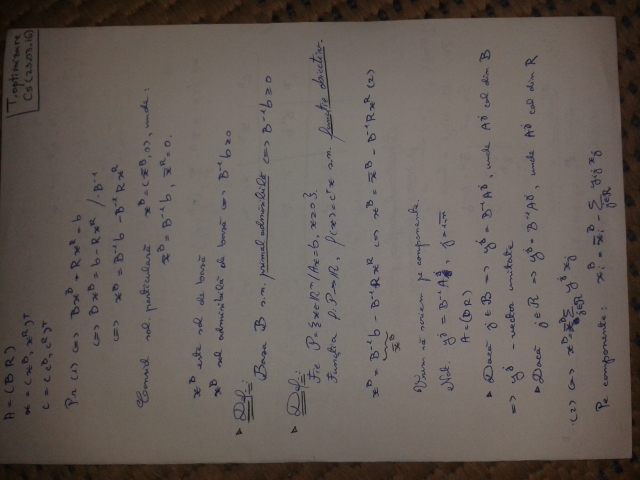 T. optimizare
C2 (23.03.16)
A = (B R)
x = (x^B, x^R)^T
c = (c^B, c^R)^T
Pr (1) <=> Bx^B + Rx^R = b
<=> Bx^B = b - Rx^R /·B^-1
<=> x^B = B^-1 b - B^-1 R x^R
Consid sol. particulară x^B = (x̄^B, 0), unde:
x̄^B = B^-1 b, x̄^R = 0.
x^B este sol de bază
x^B sol admisibilă de bază <=> B^-1 b ≥ 0
Def.:
Baza B s.n. primal admisibilă <=> B^-1 b ≥ 0
Def.:
Fie P = {x∈R^n / Ax = b, x ≥ 0}.
Funcția f: P → R, f(x) = c^T x s.n. funcție obiectiv.
x^B = B^-1 b - B^-1 R x^R <=> x^B = x̄^B - B^-1 R x^R (2)
x̄^B
Vrem să scriem pe componente.
Not. y^j = B^-1 A^j, j = 1,n
A = (B R)
Dacă j ∈ B => y^j = B^-1 A^j, unde A^j col din B
=> y^j - vector unitate
Dacă j ∈ R => y^j = B^-1 A^j, unde A^j col din R
(2) <=> x^B = x̄^B - Σ j∈R y^j x_j
Pe componente: x_i^B = x̄_i^B - Σ j∈R y_ij x_j